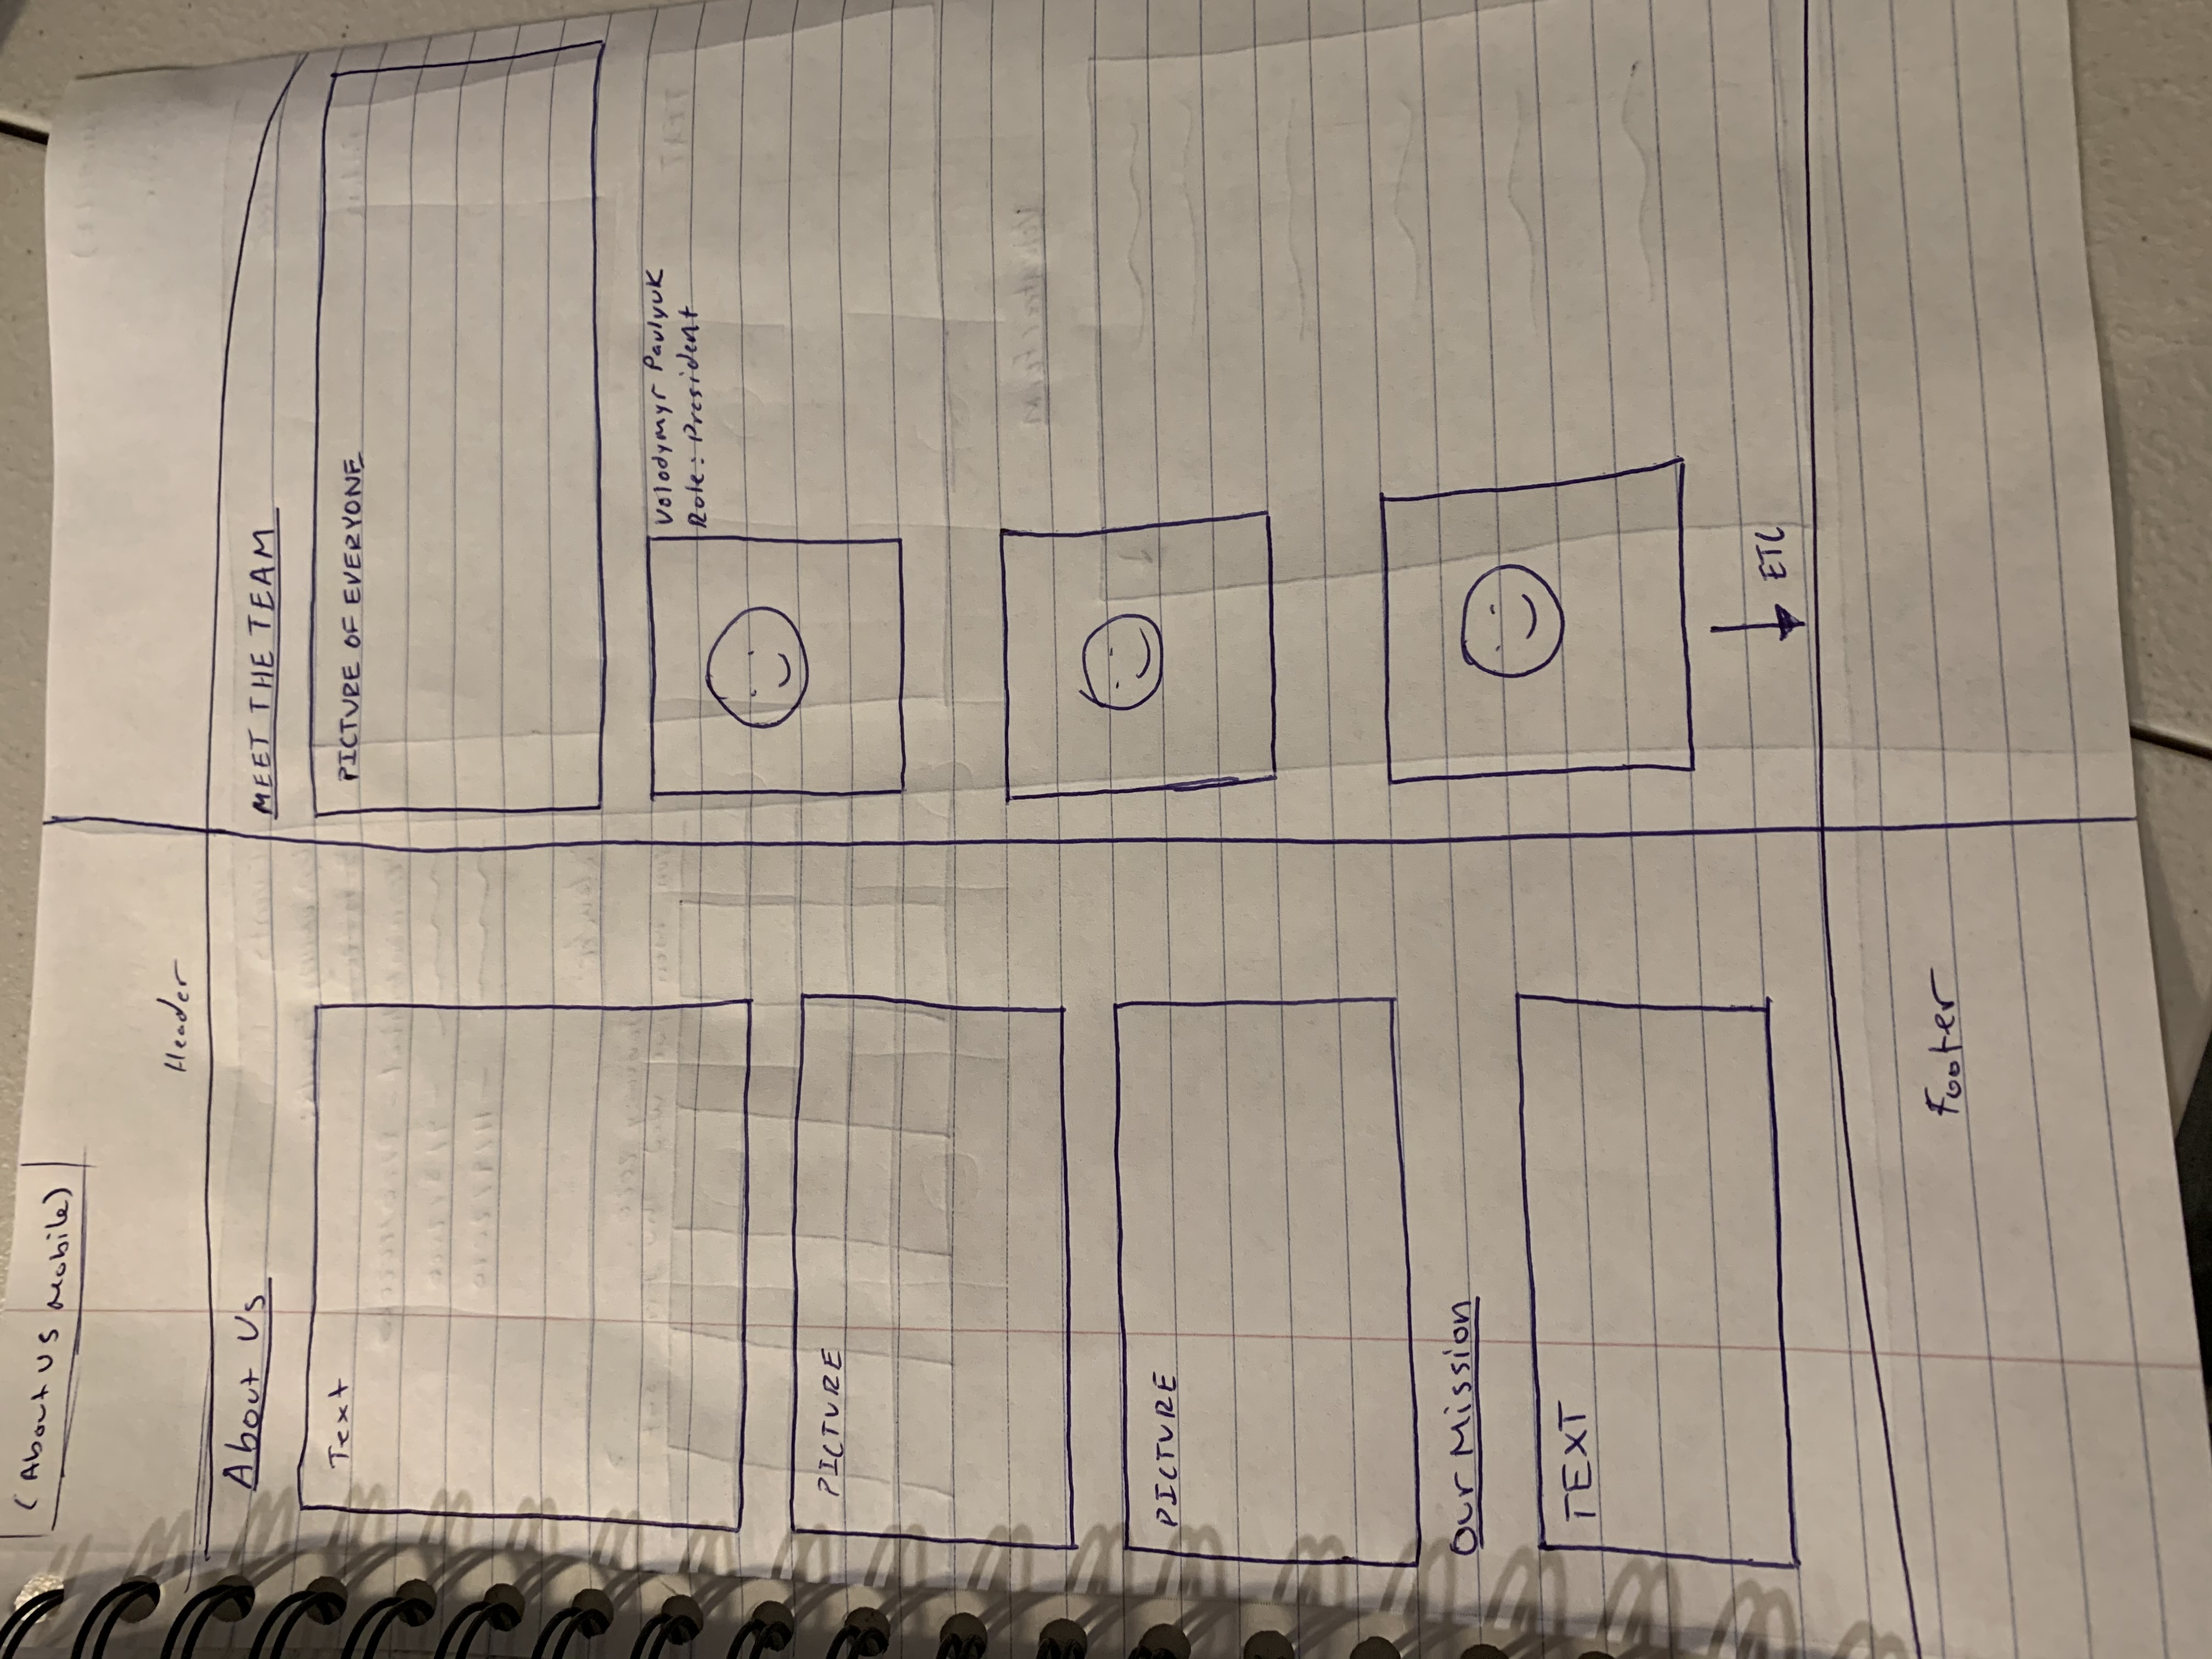 (About US Mobile)
Header
About Us
Text
PICTURE
PICTURE
Our Mission
TEXT
MEET THE TEAM
PICTURE OF EVERYONE
Volodymyr Pavlyuk
Role: President
ETC
Footer